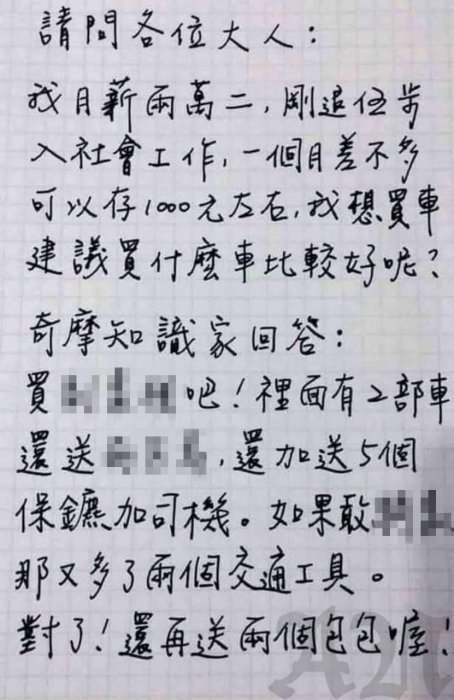 請問各位大人：
我月薪兩萬二，剛退伍步
入社會工作，一個月差不多
可以存1000元左右，我想買車
建議買什麼車比較好呢？
奇摩知識家回答：
買 吧！裡面有2部車
還送 ，還加送5個
保鑣加司機。如果敢
那又多了兩個交通工具。
對了！還再送兩個包包喔！